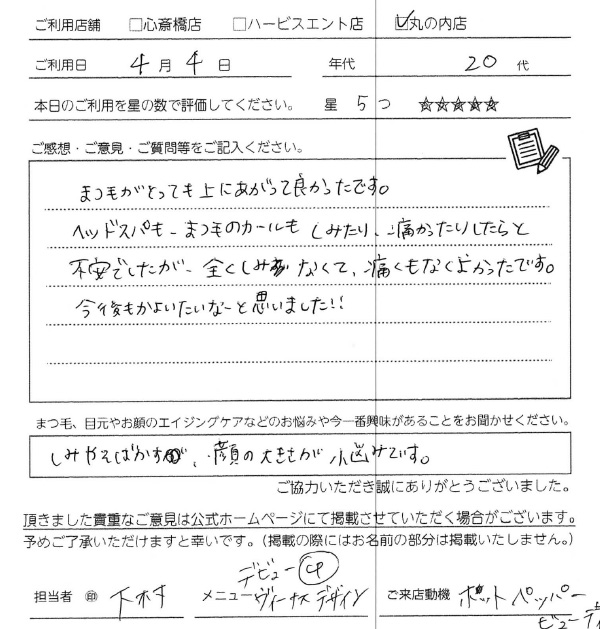 ご利用店舗 □心斎橋店 □ハービスエント店 ☑丸の内店
ご利用日 4月4日 年代 20代
本日のご利用を星の数で評価してください。 星 5つ ☆☆☆☆☆
ご感想・ご意見・ご質問等をご記入ください。
まつ毛がとっても上にあがって良かったです。
ヘッドスパも、まつ毛のカールも しみたり、痛かったりしたらと
不安でしたが、全くしみなくて、痛くもなくよかったです。
今後もかよいたいなーと思いました!!
まつ毛、目元やお顔のエイジングケアなどのお悩みや今一番興味があることをお聞かせください。
しみやそばかす、顔の大きさが 悩みです。
ご協力いただき誠にありがとうございました。
頂きました貴重なご意見は公式ホームページにて掲載させていただく場合がございます。
予めご了承いただけますと幸いです。（掲載の際にはお名前の部分は掲載いたしません。）
デビュー CP
担当者 下村 メニュー ヴィーナスデザイン ご来店動機 ホットペッパー
ビューティ